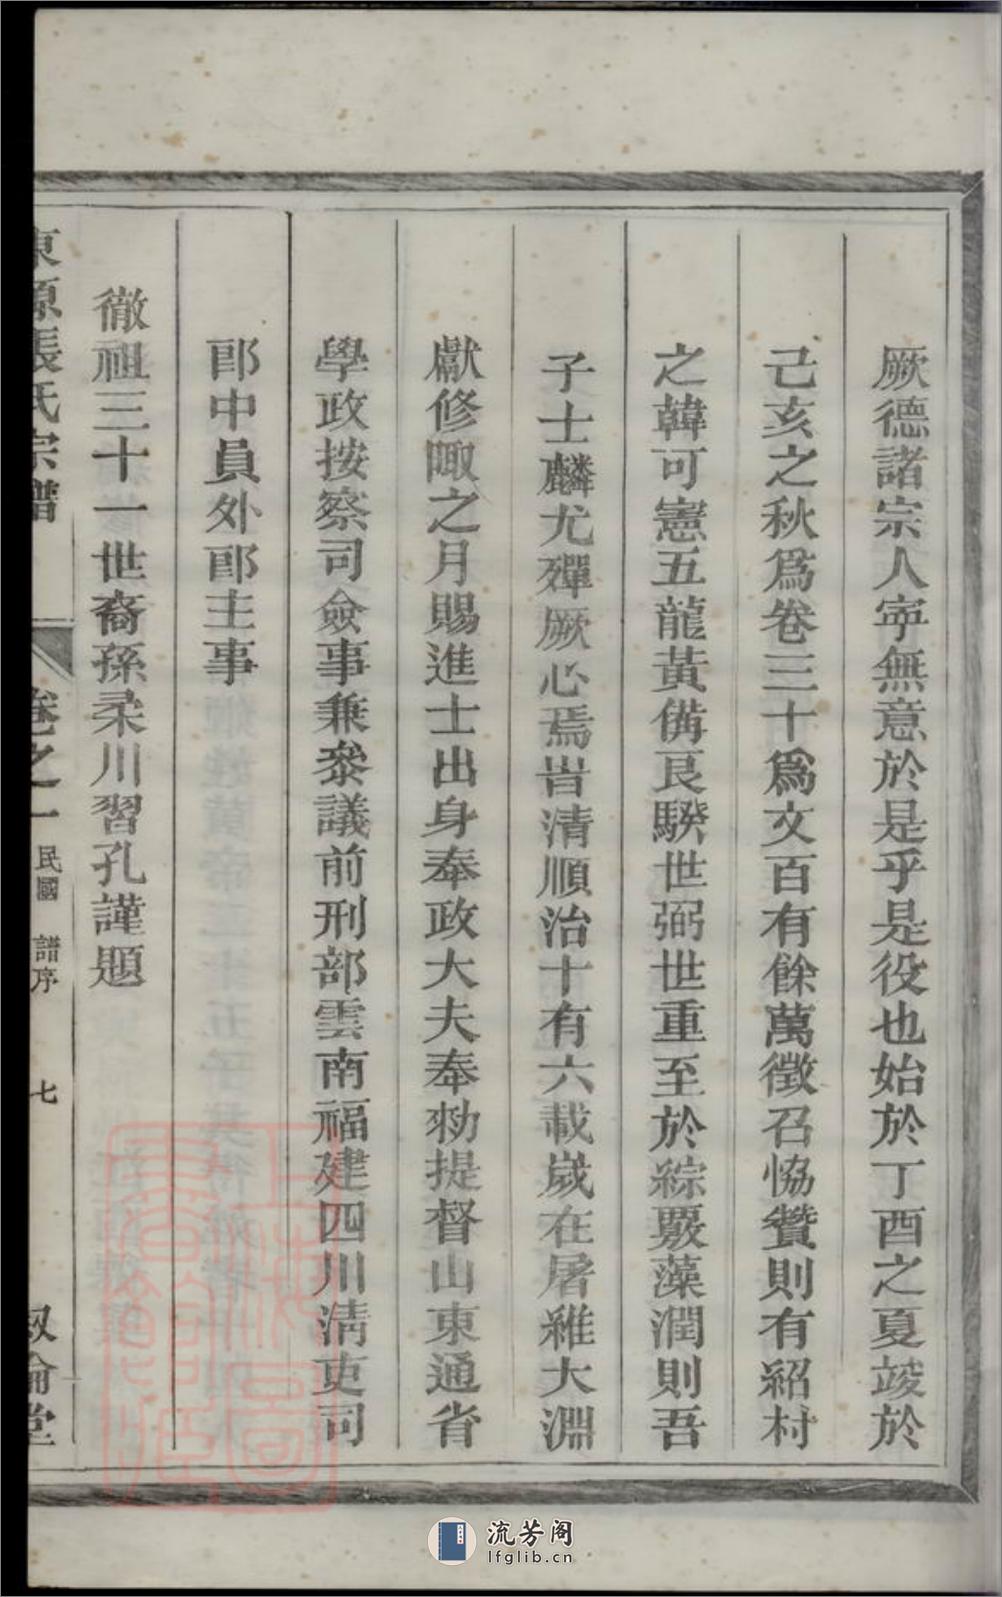 厥德諸宗人寧無意於是乎是役也始於丁酉之夏竣於
己亥之秋爲卷三十爲文百有餘萬徵召恊贊則有紹村
之韓可憲五龍黃備良騤世弼世重至於綜覈藻潤則吾
子士麟尤殫厥心焉峕清順治十有六載歲在屠維大淵
獻修陬之月賜進士出身奉政大夫奉勑提督山東通省
學政按察司僉事兼叅議前刑部雲南福建四川清吏司
郎中員外郎主事
徹祖三十一世裔孫柔川習孔謹題
東源張氏宗譜 卷之一 民國 譜序 七 叙倫堂
流芳阁
lfglib.cn